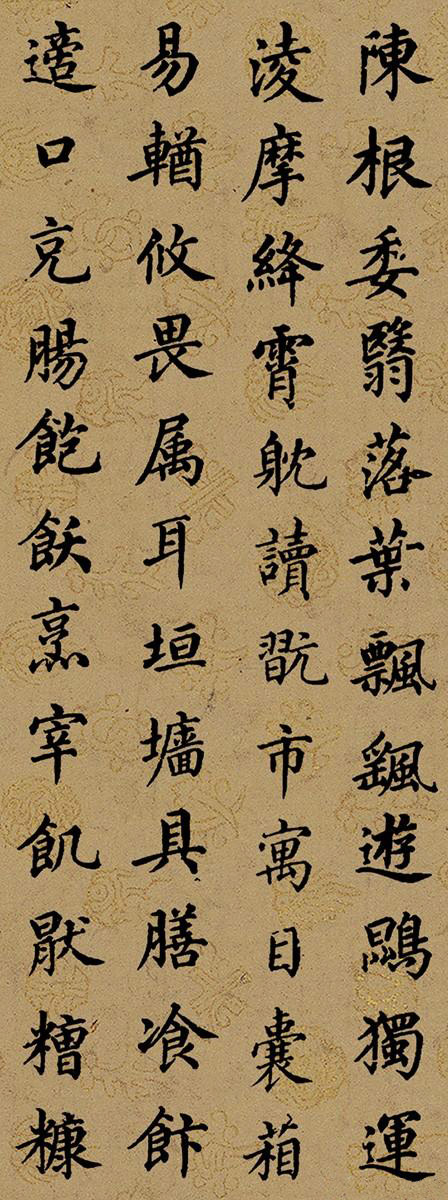 陳根委翳落葉飄颻遊鵾獨運
淩摩絳霄躭讀翫市寓目囊箱
易輶攸畏属耳垣墻具膳飡飰
適口充腸飽飫烹宰飢猒糟糠